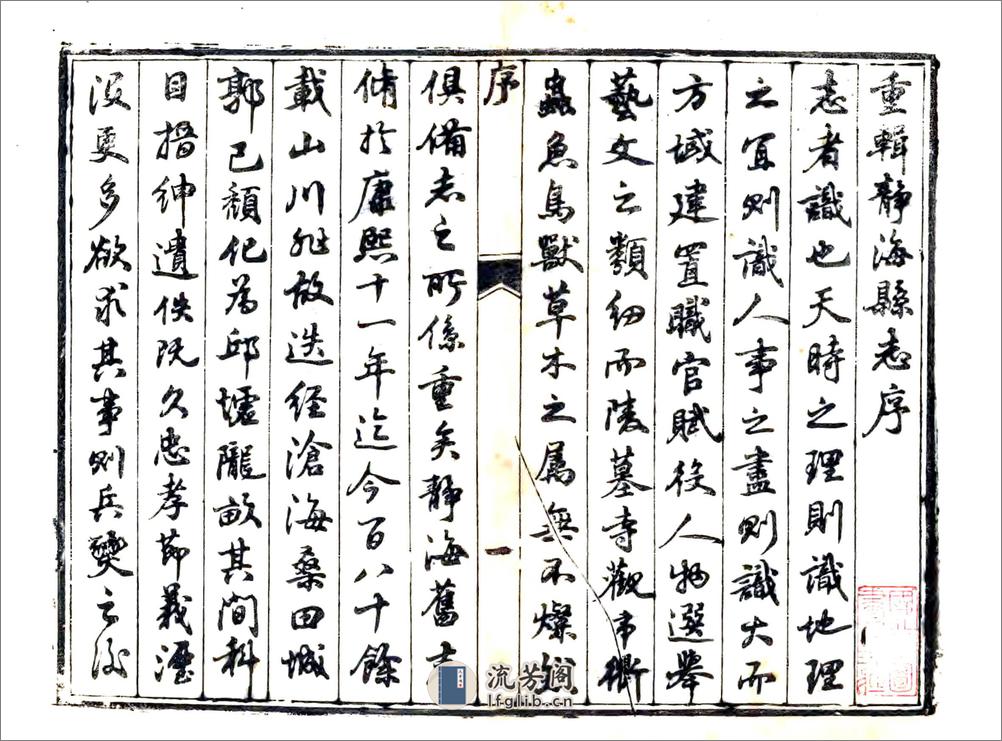 重輯靜海縣志序
志者識也天時之理則識地理
之宜則識人事之盡則識大而
方域建置職官賦役人物選舉
藝文之類細而陵墓寺觀市衢
蟲魚鳥獸草木之屬無不燦然
序 一
俱備志之所係重矣靜海舊志
脩於康熙十一年迄今百八十餘
載山川雖故迭經滄海桑田城
郭已頹化為邱墟隴畝其間科
目搢紳遺佚既久忠孝節義湮
沒更多欲求其事則兵燹之後
流芳阁
lfglib.cn